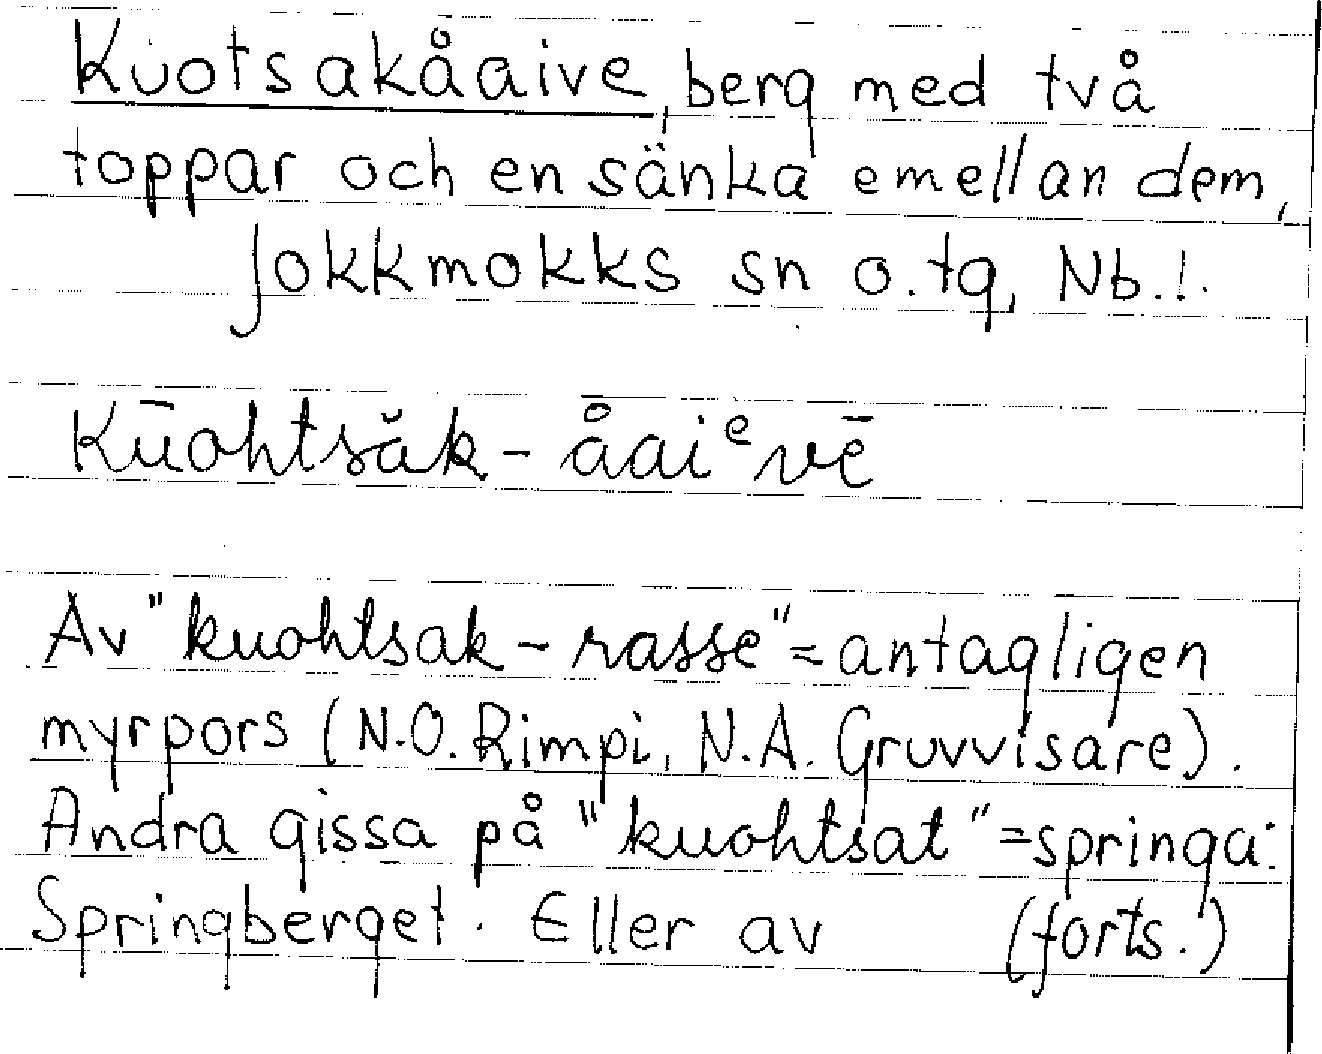 Kuotsakåaive, berg med två
toppar och en sänka emellan dem,
Jokkmokks sn o. tg, Nb. l.
Kūohtsăk-åaiᵉvē
Av "kuohtsak-rasse" = antagligen
myrpors (N.O. Rimpi, N.A. Gruvvisare).
Andra gissa på "kuohtsat" = springa:
Springberget. Eller av (forts.)